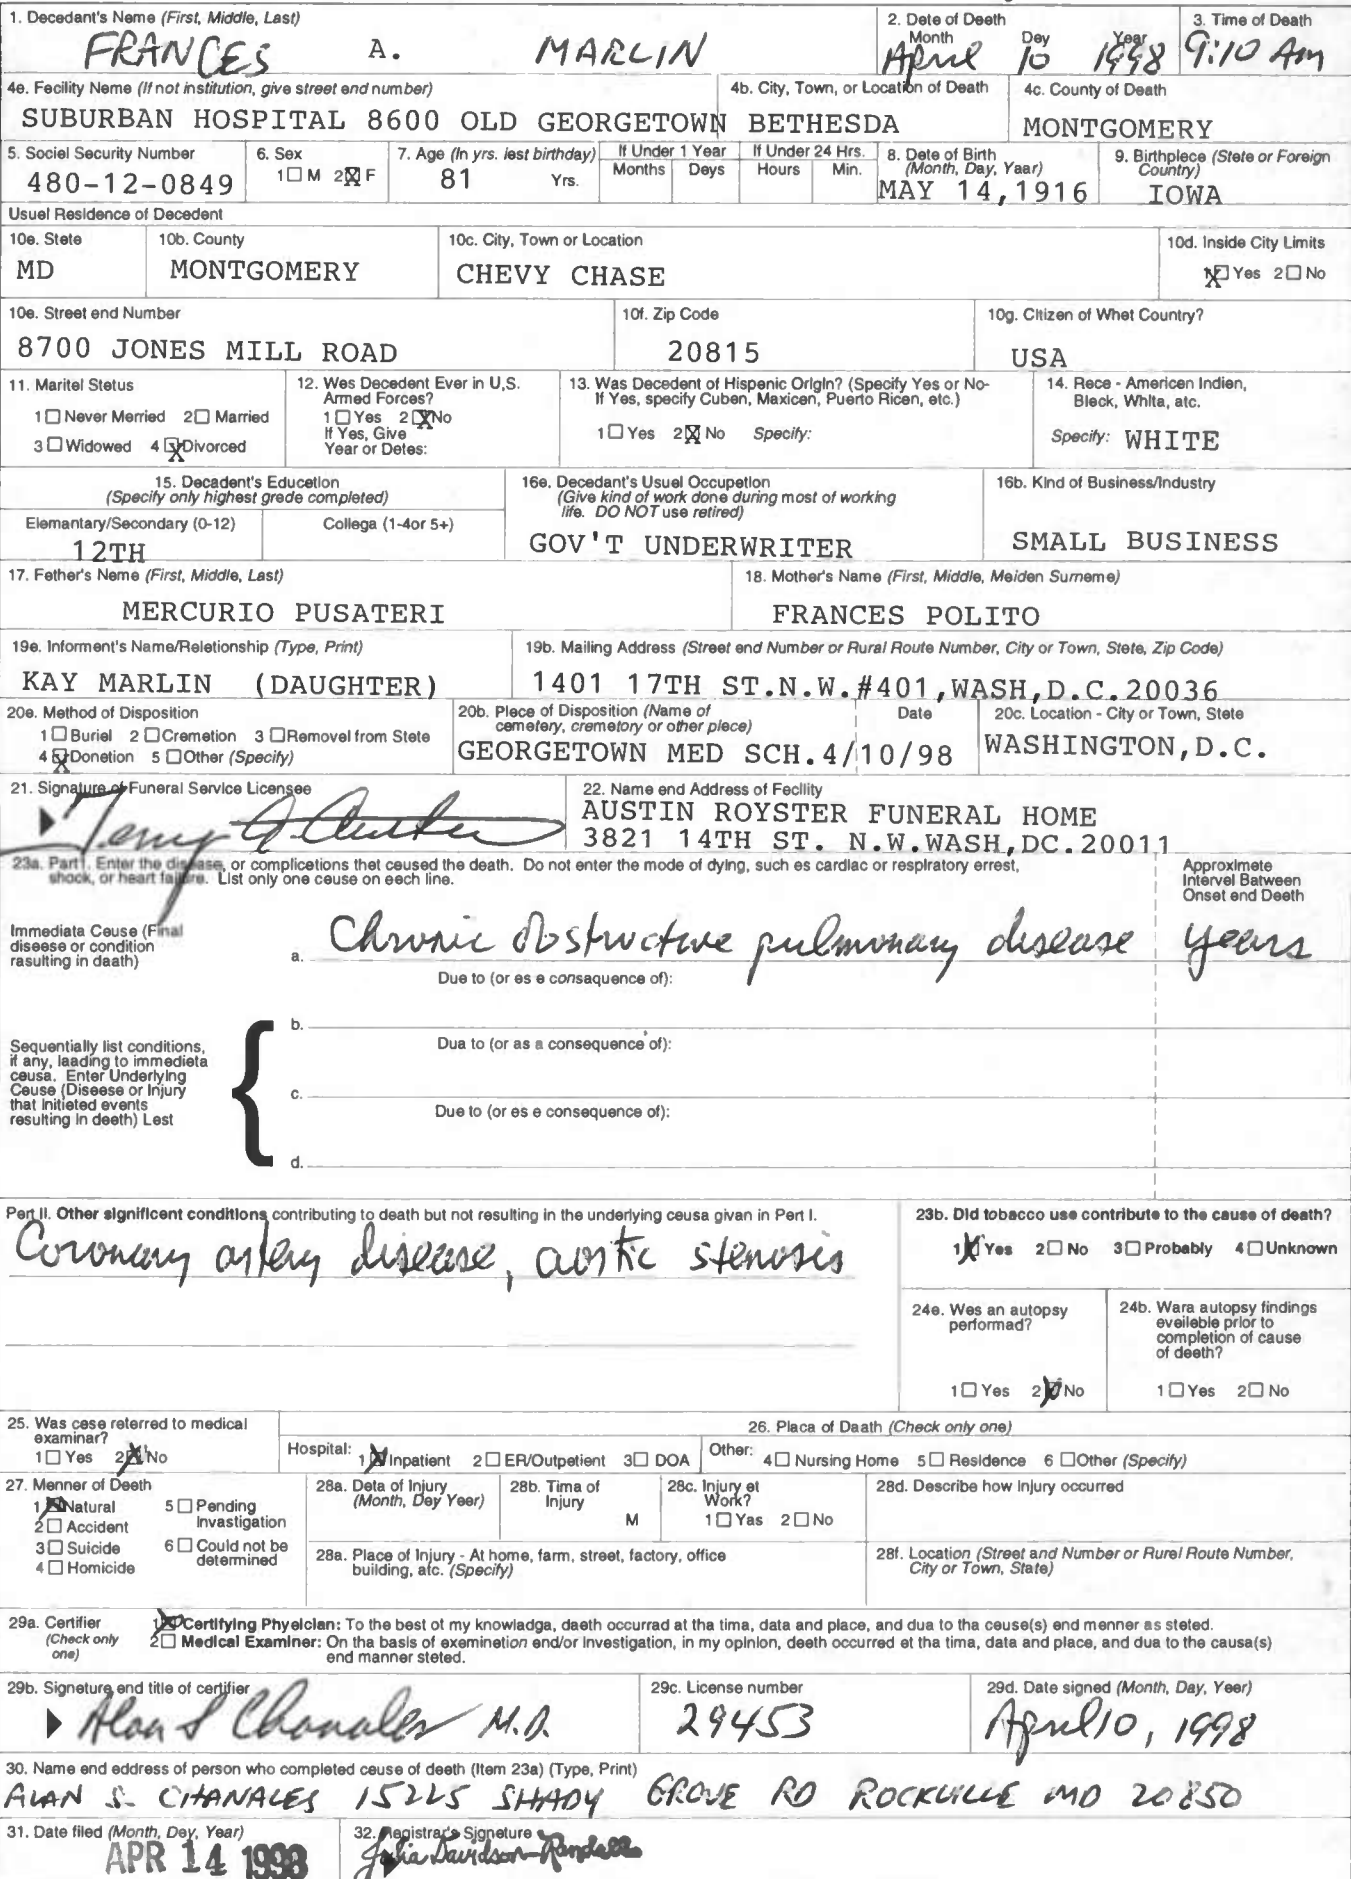 1. Decedant's Name (First, Middle, Last)
FRANCES A. MARLIN
2. Date of Death
Month Day Year
April 10 1998
3. Time of Death
9:10 Am
4e. Fecility Name (If not institution, give street end number)
SUBURBAN HOSPITAL 8600 OLD GEORGETOWN
4b. City, Town, or Location of Death
BETHESDA
4c. County of Death
MONTGOMERY
5. Sociel Security Number
480-12-0849
6. Sex
1☐M 2☒F
7. Age (In yrs. lest birthday)
81 Yrs.
If Under 1 Year
Months Deys
If Under 24 Hrs.
Hours Min.
8. Dete of Birth
(Month, Day, Yaar)
MAY 14,1916
9. Birthplece (Stete or Foreign
Country)
IOWA
Usuel Residence of Decedent
10e. Stete
MD
10b. County
MONTGOMERY
10c. City, Town or Location
CHEVY CHASE
10d. Inside City Limits
1☒Yes 2☐No
10e. Street end Number
8700 JONES MILL ROAD
10f. Zip Code
20815
10g. Citizen of Whet Country?
USA
11. Maritel Stetus
1☐Never Merried 2☐Married
3☐Widowed 4☒Divorced
12. Wes Decedent Ever in U.S.
Armed Forces?
1☐Yes 2☒No
If Yes, Give
Year or Detes:
13. Was Decedent of Hispenic Origin? (Specify Yes or No-
If Yes, specify Cuben, Maxicen, Puerto Ricen, etc.)
1☐Yes 2☒No Specify:
14. Rece - Americen Indien,
Bleck, Whita, atc.
Specify: WHITE
15. Decadent's Educetion
(Specify only highest grede completed)
Elemantary/Secondary (0-12)
12TH
Collega (1-4or 5+)
16e. Decedant's Usuel Occupetion
(Give kind of work done during most of working
life. DO NOT use retired)
GOV'T UNDERWRITER
16b. Kind of Business/Industry
SMALL BUSINESS
17. Fether's Neme (First, Middle, Last)
MERCURIO PUSATERI
18. Mother's Name (First, Middle, Meiden Surneme)
FRANCES POLITO
19e. Informent's Name/Reletionship (Type, Print)
KAY MARLIN (DAUGHTER)
19b. Mailing Address (Street end Number or Rural Route Number, City or Town, Stete, Zip Code)
1401 17TH ST.N.W.#401,WASH,D.C.20036
20e. Method of Disposition
1☐Buriel 2☐Cremetion 3☐Removel from Stete
4☒Donetion 5☐Other (Specify)
20b. Plece of Disposition (Name of
cemetery, cremetory or other plece)
Date
GEORGETOWN MED SCH.4/10/98
20c. Location - City or Town, Stete
WASHINGTON,D.C.
21. Signature of Funeral Service Licensee
22. Name end Address of Fecility
AUSTIN ROYSTER FUNERAL HOME
3821 14TH ST. N.W.WASH,DC.20011
23a. Part I. Enter the disease, or complicetions thet caused the death. Do not enter the mode of dying, such es cardlac or respiratory errest,
shock, or heart failure. List only one ceuse on eech line.
Approximete
Intervel Batween
Onset end Deeth
Immediata Ceuse (Final
diseese or condition
rasulting in daath)
a. Chronic obstructive pulmonary disease years
Due to (or es e consaquence of):
b.
Dua to (or as a consequence of):
Sequentially list conditions,
if any, laading to immedieta
ceusa. Enter Underlying
Ceuse (Diseese or Injury
that Initieted events
resulting in deeth) Lest
c.
Due to (or es e consequence of):
d.
Pert II. Other significent conditions contributing to death but not resulting in the underlying ceusa givan in Pert I.
Coronary artery disease, aortic stenosis
23b. Did tobacco use contribute to the cause of death?
1☒Yes 2☐No 3☐Probably 4☐Unknown
24e. Wes an autopsy
performad?
1☐Yes 2☒No
24b. Wara autopsy findings
eveileble prior to
completion of cause
of deeth?
1☐Yes 2☐No
25. Was cese referred to medical
examinar?
1☐Yes 2☒No
26. Placa of Daath (Check only one)
Hospital: 1☒Inpatient 2☐ER/Outpetient 3☐DOA
Other: 4☐Nursing Home 5☐Residence 6☐Other (Specify)
27. Menner of Deeth
1☒Natural 5☐Pending
Invastigation
2☐Accident
3☐Suicide 6☐Could not be
determined
4☐Homicide
28a. Deta of Injury
(Month, Dey Yeer)
28b. Tima of
Injury
M
28c. Injury et
Work?
1☐Yas 2☐No
28d. Describe how Injury occurred
28a. Place of Injury - At home, farm, street, factory, office
building, atc. (Specify)
28f. Location (Street and Number or Rurel Route Number,
City or Town, State)
29a. Certifier
(Check only
one)
1☒Certifying Phyeician: To the best ot my knowladga, daeth occurrad at tha tima, data and place, and dua to tha ceuse(s) end menner as steted.
2☐Medical Examiner: On tha basis of exeminetion end/or Investigation, in my opinion, deeth occurred et tha tima, data and place, and dua to the causa(s)
end manner steted.
29b. Signeture end title of certifier
Alan S Chanales M.D.
29c. License number
29453
29d. Date signed (Month, Day, Yeer)
April 10, 1998
30. Name end eddress of person who completed ceuse of deeth (Item 23a) (Type, Print)
ALAN S. CHANALES 15225 SHADY GROVE RD ROCKVILLE MD 20850
31. Date filed (Month, Dey, Year)
APR 14 1998
32. Registrar's Signeture
Julia Davidson-Randall